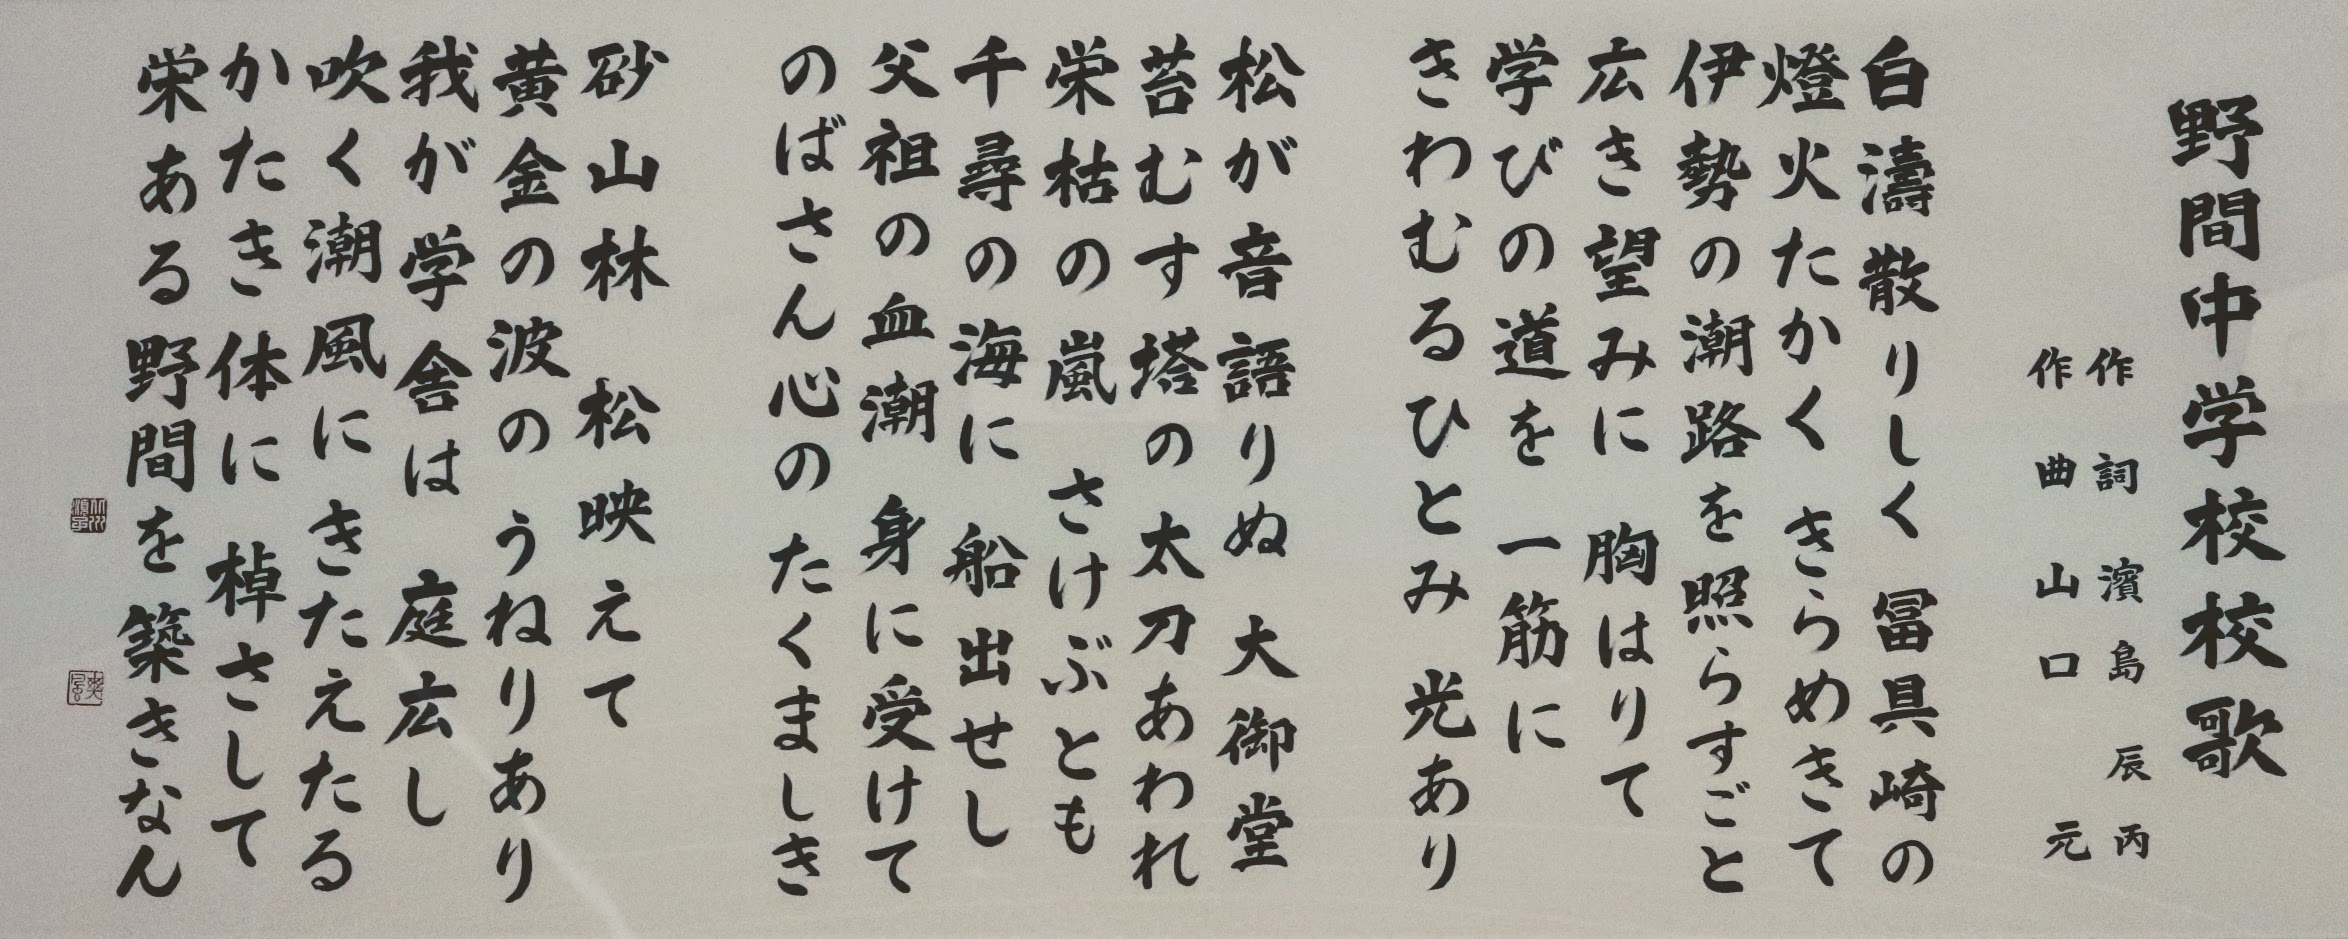 野間中学校校歌
作詞 濱島辰丙
作曲 山口元
白濤散りしく 冨具崎の
燈火たかく きらめきて
伊勢の潮路を照らすごと
広き望みに 胸はりて
学びの道を 一筋に
きわむるひとみ 光あり
松が音語りぬ 大御堂
苔むす塔の太刀あわれ
栄枯の嵐 さけぶとも
千尋の海に 船出せし
父祖の血潮 身に受けて
のばさん心の たくましき
砂山林 松映えて
黄金の波の うねりあり
我が学舎は 庭広し
吹く潮風に きたえたる
かたき体に 棹さして
栄ある野間を築きなん